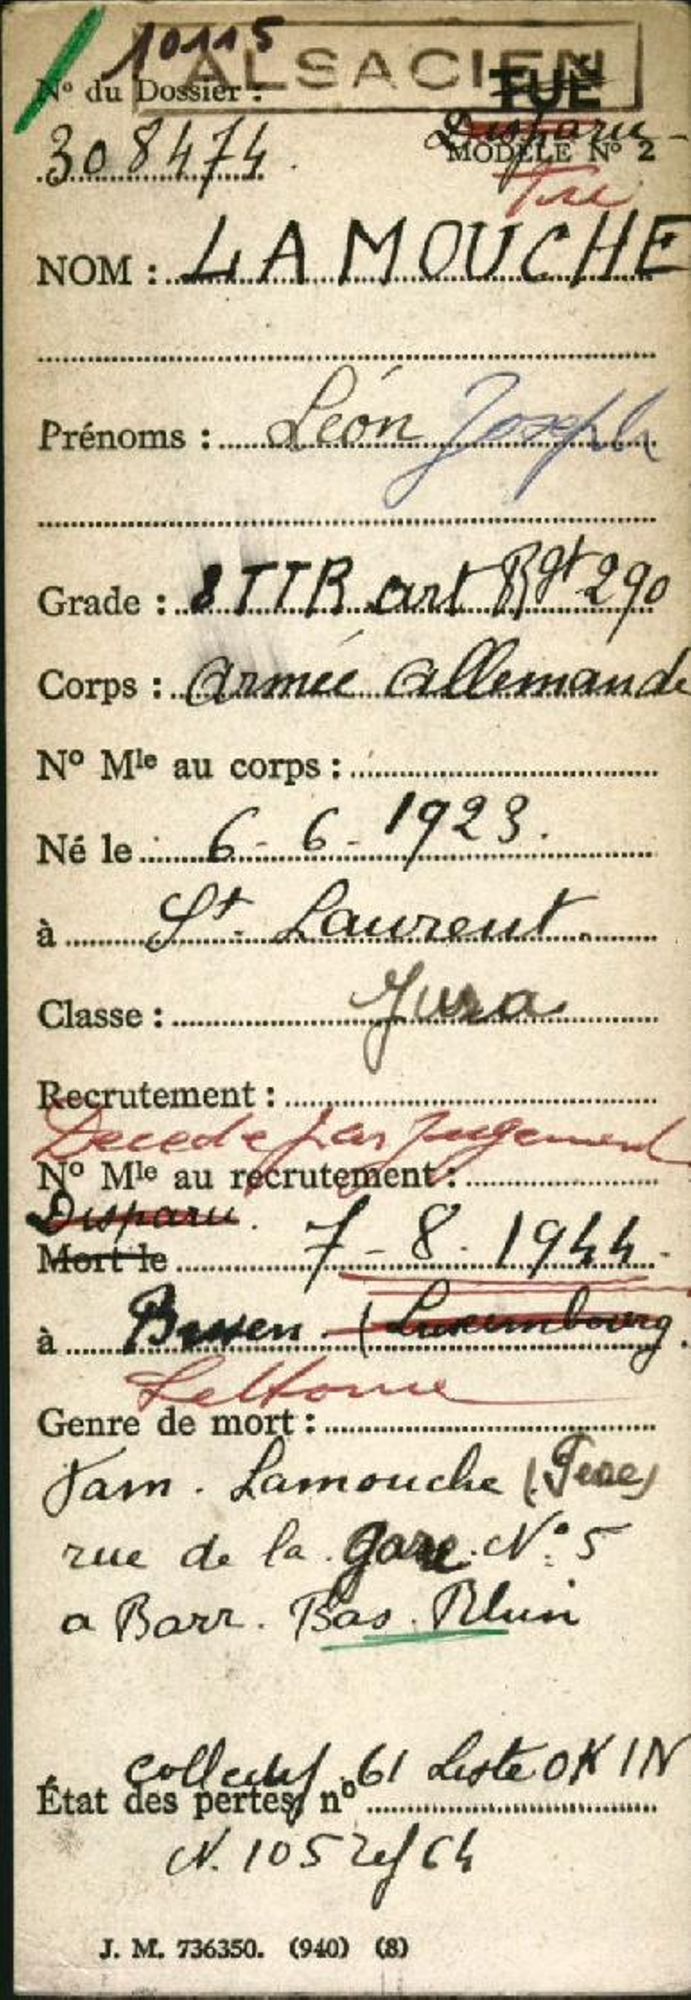 10115
ALSACIEN
TUÉ
N° du Dossier :
Disparu
308474.
MODÈLE N° 2
Tué
NOM : LAMOUCHE
Prénoms : Léon Joseph
Grade : 8 TTR art Rgt 290
Corps : Armée allemande
N° Mle au corps :
Né le 6-6-1923.
à St. Laurent.
Classe : Jura
Recrutement :
Decede par Jugement
N° Mle au recrutement :
Disparu.
Mort le 7-8-1944.
à Bissen (Luxembourg.
Lettonie
Genre de mort :
Fam. Lamouche (Pere)
rue de la Gare. N° 5
a Barr. Bas. Rhin
collectif 61 Liste OKIN
État des pertes n°
N. 105 ref 64
J. M. 736350. (940) (8)